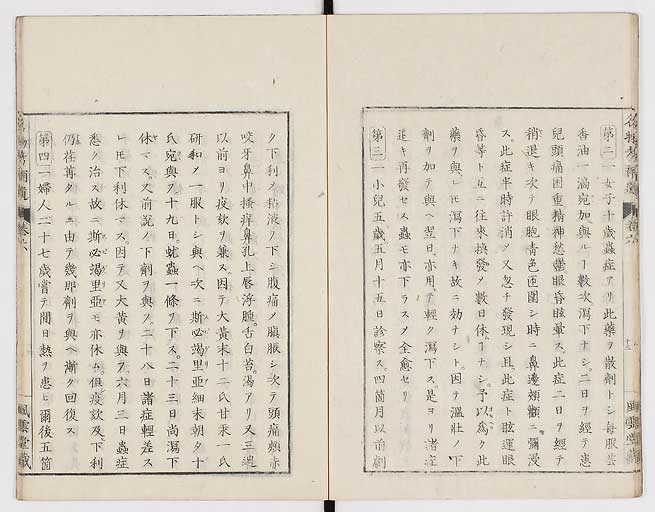 第二一女子十歳蟲症アリ此藥ヲ散劑トシ毎服茴
香油一滴宛加與ルヿ數次瀉下ナシ二日ヲ經テ患
兒頭痛困重精神愁鬱眼昏眩暈ス此症二日ヲ經テ
稍退キ次テ眼胞青色匝圍シ時ニ鼻邊頬顴ニ彌漫
ス此症半時許消ノ又忽チ發現シ且此症ト眩運眼
昏等ト互ニ往來換發ノ數日休マナシ予以為ク此
藥ヲ與レ𪜈瀉下ナキ故ニ効ナシト因テ溫壯ノ下
劑ヲ加テ與ヘ翌日亦用テ輕ク瀉下ス是ヨリ諸症
退キ再發セス蟲モ亦下ラスノ全愈セリ
第三一小兒五歳五月十五日診察ス四箇月以前劇
ク下利ノ粘液ヲ下シ腹痛ノ臍脹シ次テ頭痛頬赤
咬牙鼻中搔痒鼻孔上唇浮腫舌白苔渴アリ又三週
以前ヨリ疫欬ヲ兼ス因テ大黃末十二氏甘汞一氏
研和ノ一服トシ與ヘ次ニ斯必竭里亜細末朝夕十
氏宛與フ十九日蚘蟲一條ヲ下ス二十三日尚瀉下
休マス又前說ノ下劑ヲ與フ二十八日諸症輕差ス
レ𪜈下利休マス因テ又大黃ヲ與フ六月三日蟲症
悉ク治ス故ニ斯必竭里亜モ亦休ム但疫欬及下利
仍在荐タルニ由テ幾那劑ヲ與ヘ漸ク回復ス
第四一婦人二十七歳嘗テ間日熱ヲ患ヒ爾後五箇
風雲堂藏